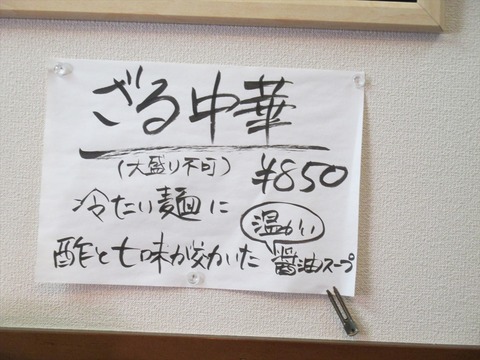 ざる中華
(大盛り不可) ¥850
冷たい麺に
温かい
酢と七味が効いた醤油スープ